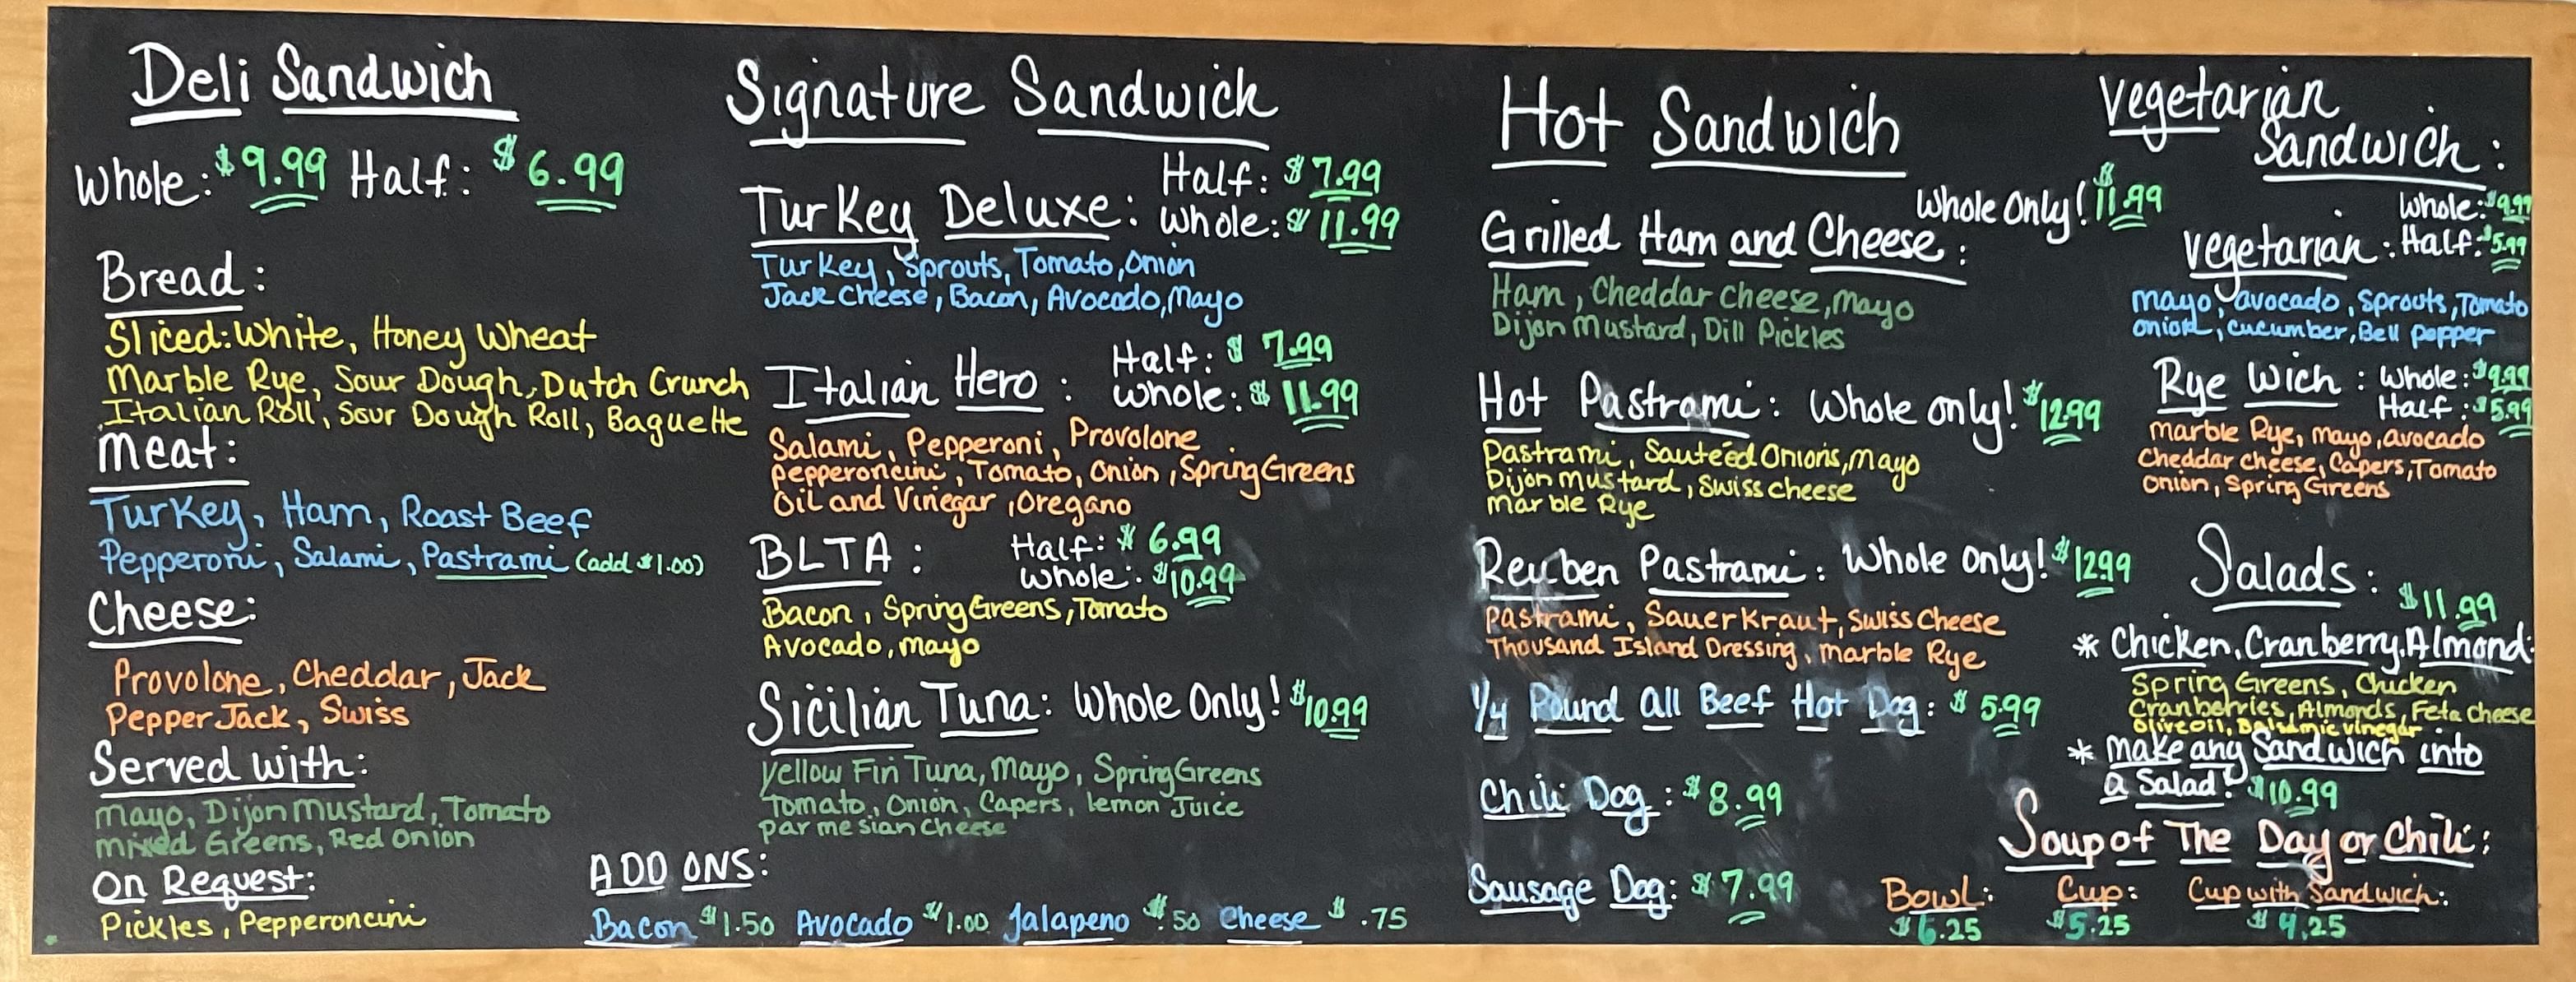 Deli Sandwich
Whole: $9.99 Half: $6.99
Bread:
Sliced: White, Honey Wheat
Marble Rye, Sour Dough, Dutch Crunch
Italian Roll, Sour Dough Roll, Baguette
Meat:
Turkey, Ham, Roast Beef
Pepperoni, Salami, Pastrami (add $1.00)
Cheese:
Provolone, Cheddar, Jack
Pepper Jack, Swiss
Served with:
Mayo, Dijon Mustard, Tomato
mixed Greens, Red Onion
On Request:
Pickles, Pepperoncini
Signature Sandwich
Turkey Deluxe: Half: $7.99
Whole: $11.99
Turkey, Sprouts, Tomato, Onion
Jack Cheese, Bacon, Avocado, Mayo
Italian Hero: Half: $7.99
Whole: $11.99
Salami, Pepperoni, Provolone
pepperoncini, Tomato, Onion, Spring Greens
Oil and Vinegar, Oregano
BLTA: Half: $6.99
Whole: $10.99
Bacon, Spring Greens, Tomato
Avocado, mayo
Sicilian Tuna: Whole Only! $10.99
Yellow Fin Tuna, Mayo, Spring Greens
Tomato, Onion, Capers, lemon Juice
parmesian cheese
ADD ONS:
Bacon $1.50 Avocado $1.00 Jalapeno $.50 Cheese $.75
Hot Sandwich
Grilled Ham and Cheese: Whole Only! $11.99
Ham, Cheddar Cheese, Mayo
Dijon Mustard, Dill Pickles
Hot Pastrami: Whole only! $12.99
Pastrami, Sautéed Onions, Mayo
Dijon Mustard, Swiss cheese
Marble Rye
Reuben Pastrami: Whole Only! $12.99
Pastrami, Sauerkraut, Swiss Cheese
Thousand Island Dressing, marble Rye
1/4 Pound All Beef Hot Dog: $5.99
Chili Dog: $8.99
Sausage Dog: $7.99
Vegetarian
Sandwich:
Vegetarian: Whole: $9.99
Half: $5.99
mayo, avocado, Sprouts, Tomato
onion, cucumber, Bell pepper
Rye Wich: Whole: $9.99
Half: $5.99
marble Rye, mayo, avocado
Cheddar cheese, Capers, Tomato
Onion, Spring Greens
Salads:
$11.99
* Chicken, Cranberry, Almond:
Spring Greens, Chicken
Cranberries, Almonds, Feta cheese
Olive oil, Balsamic vinegar
* make any Sandwich into
a Salad: $10.99
Soup of The Day or Chili:
Bowl: Cup: Cup with Sandwich:
$6.25 $5.25 $4.25